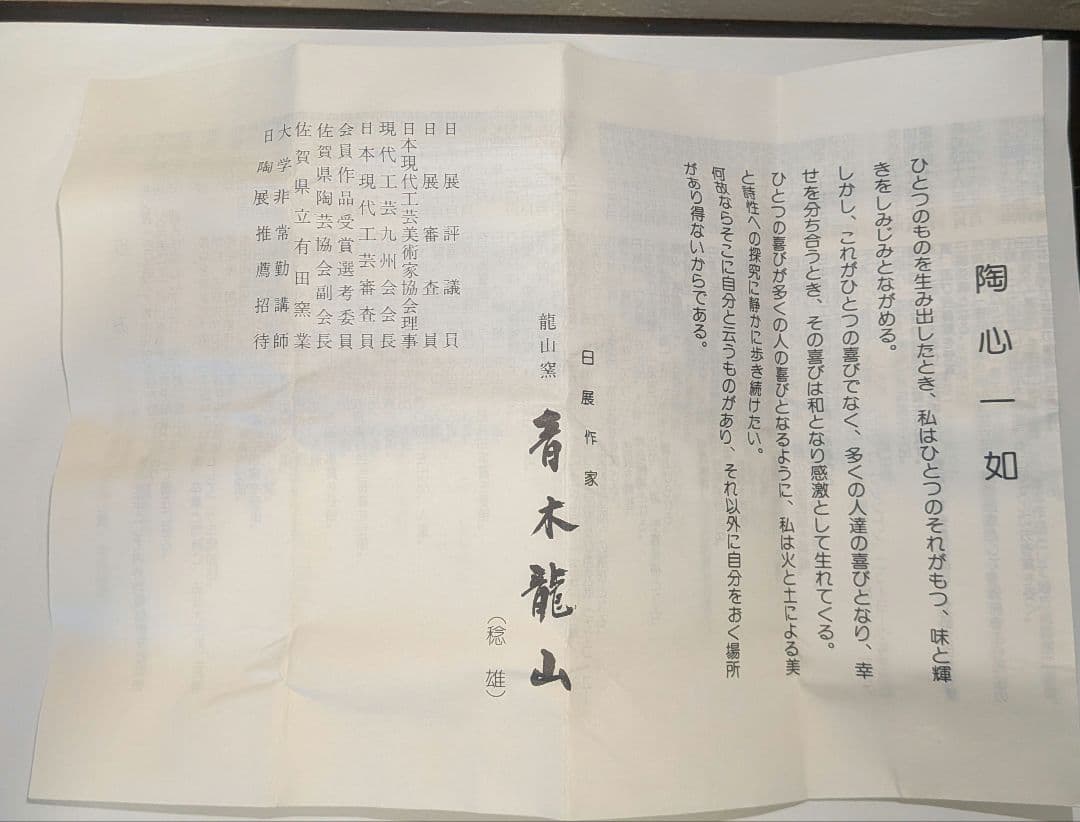 陶心一如
ひとつのものを生み出したとき、私はひとつのそれがもつ、味と輝
きをしみじみとながめる。
しかし、これがひとつの喜びでなく、多くの人達の喜びとなり、幸
せを分ち合うとき、その喜びは和となり感激として生れてくる。
ひとつの喜びが多くの人の喜びとなるように、私は火と土による美
と詩性への探究に静かに歩き続けたい。
何故ならそこに自分と云うものがあり、それ以外に自分をおく場所
があり得ないからである。
日展作家
龍山窯 青木龍山
（稔雄）
日展評議員
日展審査員
日本現代工芸美術家協会理事
現代工芸九州会会長
日本現代工芸審査員
会員作品受賞選考委員
佐賀県陶芸協会副会長
佐賀県立有田窯業
大学非常勤講師
日陶展推薦招待